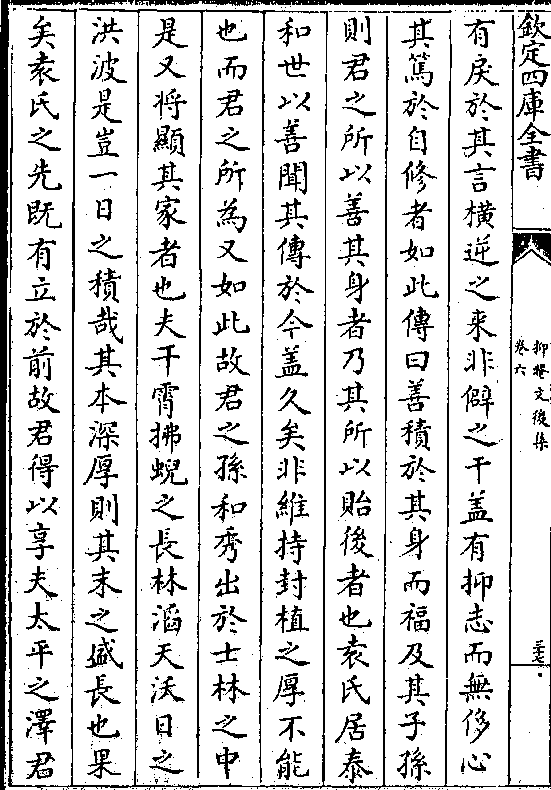 欽定四庫全書
抑菴文後集
卷六
三七
有戾於其言橫逆之来非僻之干盖有抑志而無侈心
其篤於自修者如此傳曰善積於其身而福及其子孫
則君之所以善其身者乃其所以貽後者也袁氏居泰
和世以善聞其傳於今盖久矣非維持封植之厚不能
也而君之所為又如此故君之孫和秀出於士林之中
是又将顯其家者也夫干霄拂蜺之長林滔天沃日之
洪波是豈一日之積哉其本深厚則其末之盛長也果
矣袁氏之先既有立於前故君得以享夫太平之澤君